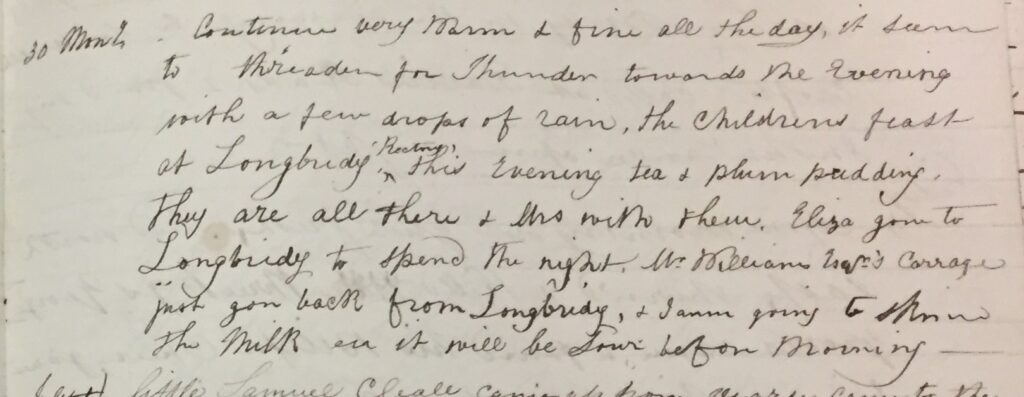 30 Mondy. Continue very Warm & fine all the day, it seem
to threaden for Thunder towards the Evening
with a few drops of rain, the Childrens feast
at Longbridy Rectory, this Evening tea & plum pudding.
they are all there & Mrs with them. Eliza gon to
Longbridy to spend the night. Mr Williams Esqr's Carrage
just gon back from Longbridy, & I am going to skim
the Milk it will be before Morning
little Samuel Cleall from the